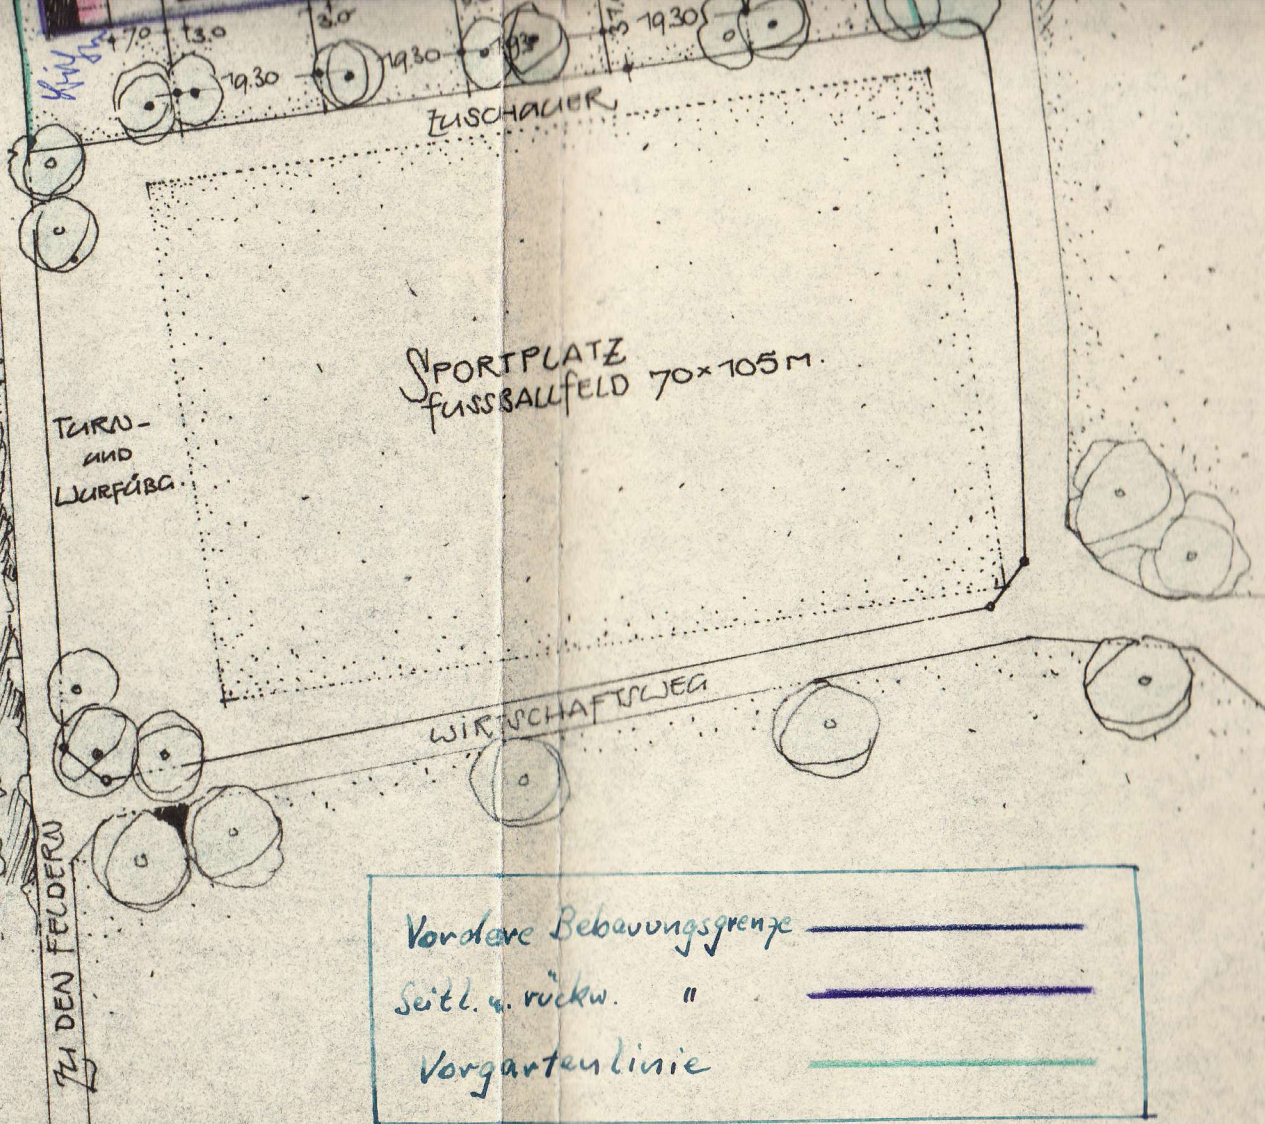 70
3.0
3.0
19.30
19.30
1930
19.30
ZUSCHAUER
SPORTPLATZ
FUSSBALLFELD 70×105 M.
TURN-
UND
WURFÜBG.
WIRTSCHAFTSWEG
ZU DEN FELDERN
Vordere Bebauungsgrenze
Seitl. u. rückw. "
Vorgartenlinie